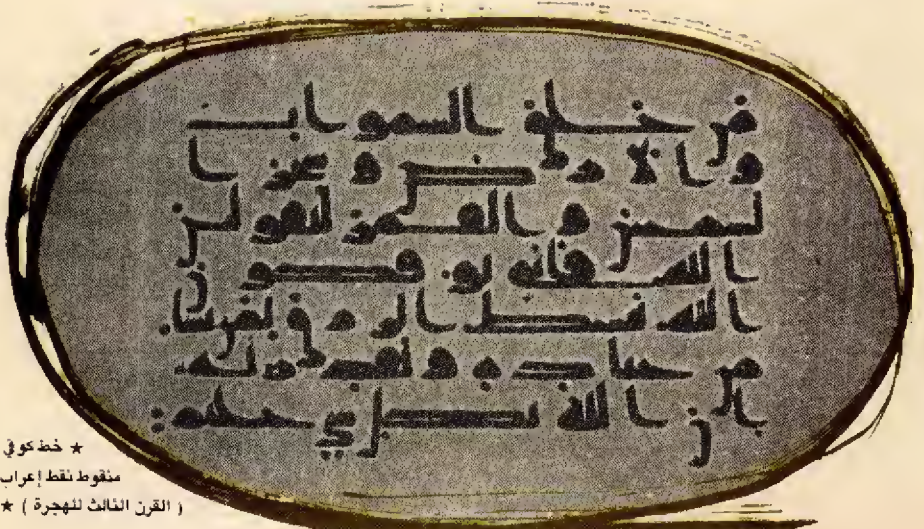 من خلق السموات
والارض وسخر ا
لشمس والقمر ليقولن
الله فانى يوفكون
الله يبسط الرزق لمن يشا
من عباده ويقدر له
ان الله بكل شي عليم
★ خط كوفي
منقوط نقط إعراب
( القرن الثالث للهجرة ) ★